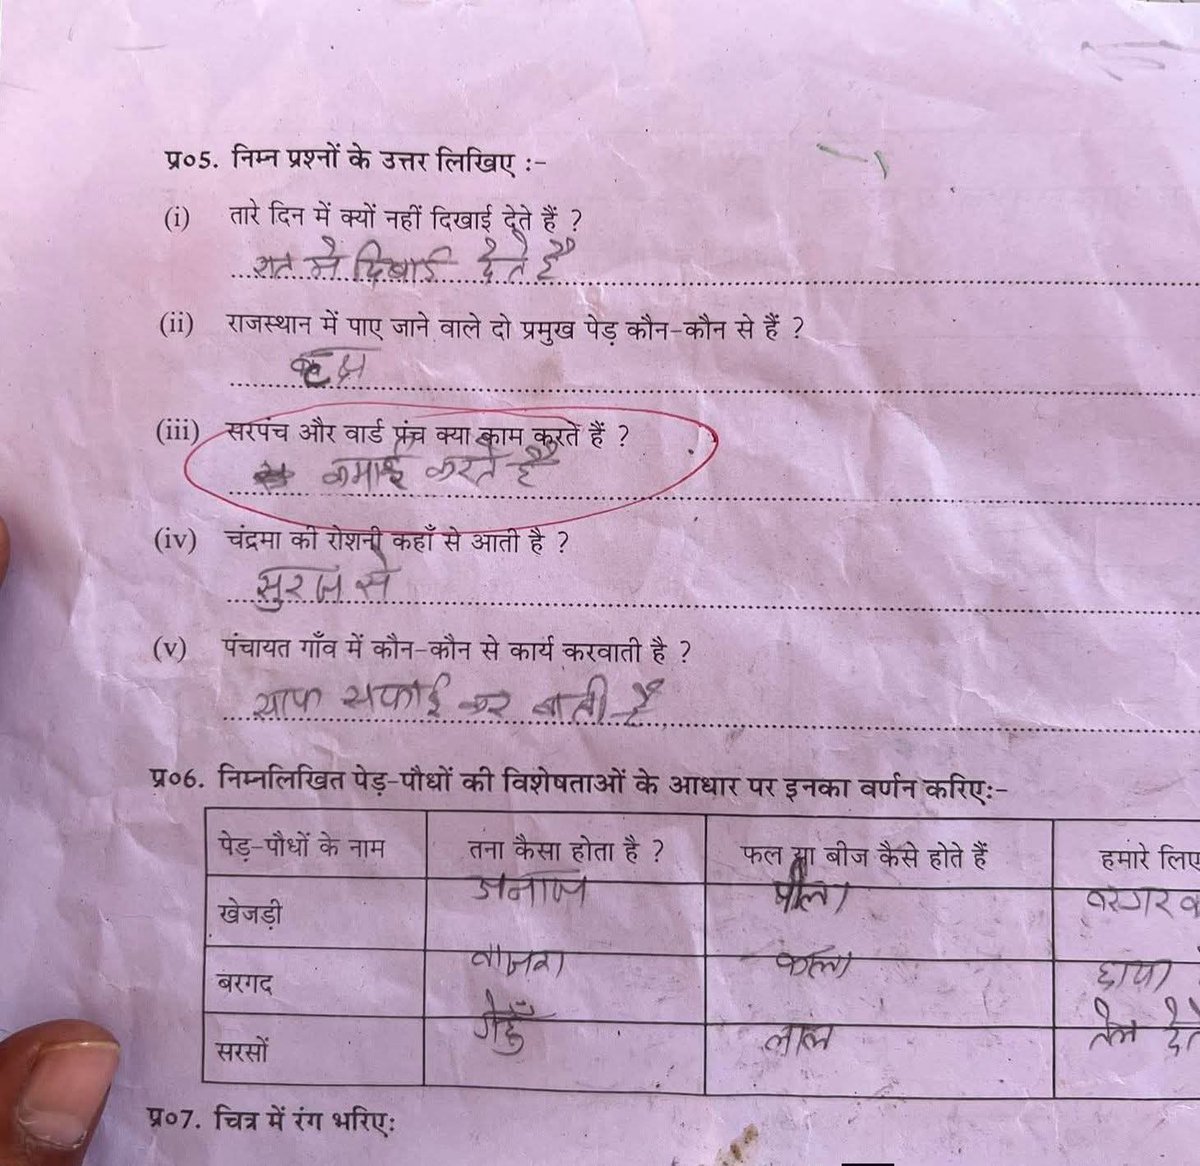 प्र०5. निम्न प्रश्नों के उत्तर लिखिए :-
(i) तारे दिन में क्यों नहीं दिखाई देते हैं ?
रात मे दिखाई देते है
(ii) राजस्थान में पाए जाने वाले दो प्रमुख पेड़ कौन-कौन से हैं ?
(iii) सरपंच और वार्ड पंच क्या काम करते हैं ?
कमाई करते है
(iv) चंद्रमा की रोशनी कहाँ से आती है ?
सुरज से
(v) पंचायत गाँव में कौन-कौन से कार्य करवाती है ?
साफ सफाई कर वाती है
प्र०6. निम्नलिखित पेड़-पौधों की विशेषताओं के आधार पर इनका वर्णन करिए:-
पेड़-पौधों के नाम तना कैसा होता है ? फल या बीज कैसे होते हैं हमारे लिए
खेजड़ी अनाज पीला
बरगद बाजरा काला छाया
सरसों गेहूँ लाल तेल देते
प्र०7. चित्र में रंग भरिए: